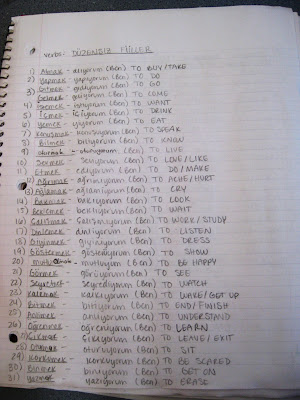 verbs: DÜZENSİZ FİİLLER
1) Almak - alıyorum (Ben) TO BUY/TAKE
2) Yapmak - yapıyorum (Ben) TO DO
3) Gitmek - gidiyorum (Ben) TO GO
Gelmek - geliyorum (Ben) TO COME
4) İstemek - istiyorum (Ben) TO WANT
5) İçmek - içiyorum (Ben) TO DRINK
6) Yemek - yiyorum (Ben) TO EAT
7) Konuşmak - konuşuyorum (Ben) TO SPEAK
8) Bilmek - biliyorum (Ben) TO KNOW
9) (Ben) TO LIVE
10) Sevmek - seviyorum (Ben) TO LOVE/LIKE
11) Etmek - ediyorum (Ben) TO DO/MAKE
12) Ağrımak - ağrınıyorum (Ben) TO ACHE/HURT
13) Ağlamak - ağlamıyorum (Ben) TO CRY
14) Bakmak - bakıyorum (Ben) TO LOOK
15) Beklemek - bekliyorum (Ben) TO WAIT
16) Çalışmak - çalışıyorum (Ben) TO WORK/STUDY
17) Dinlemek - dinliyorum (Ben) TO LISTEN
18) Giyinmek - giyiniyorum (Ben) TO DRESS
19) Göstermek - gösteriyorum (Ben) TO SHOW
20) mutlu olmak - mutluyum (Ben) TO BE HAPPY
21) Görmek - görüyorum (Ben) TO SEE
22) Seyretmek - seyrediyorum (Ben) TO WATCH
23) Kalkmak - kalkıyorum (Ben) TO WAKE/GET UP
24) Bitmek - bitiyorum (Ben) TO END/FINISH
25) - anlıyorum (Ben) TO UNDERSTAND
26) Öğrenmek - öğreniyorum (Ben) TO LEARN
27) Çıkmak - çıkıyorum (Ben) TO LEAVE/EXIT
28) Oturmak - oturuyorum (Ben) TO SIT
29) Korkmak - korkuyorum (Ben) TO BE SCARED
30) Binmek - biniyorum (Ben) TO GET ON
31) yazıyorum (Ben) TO ERASE